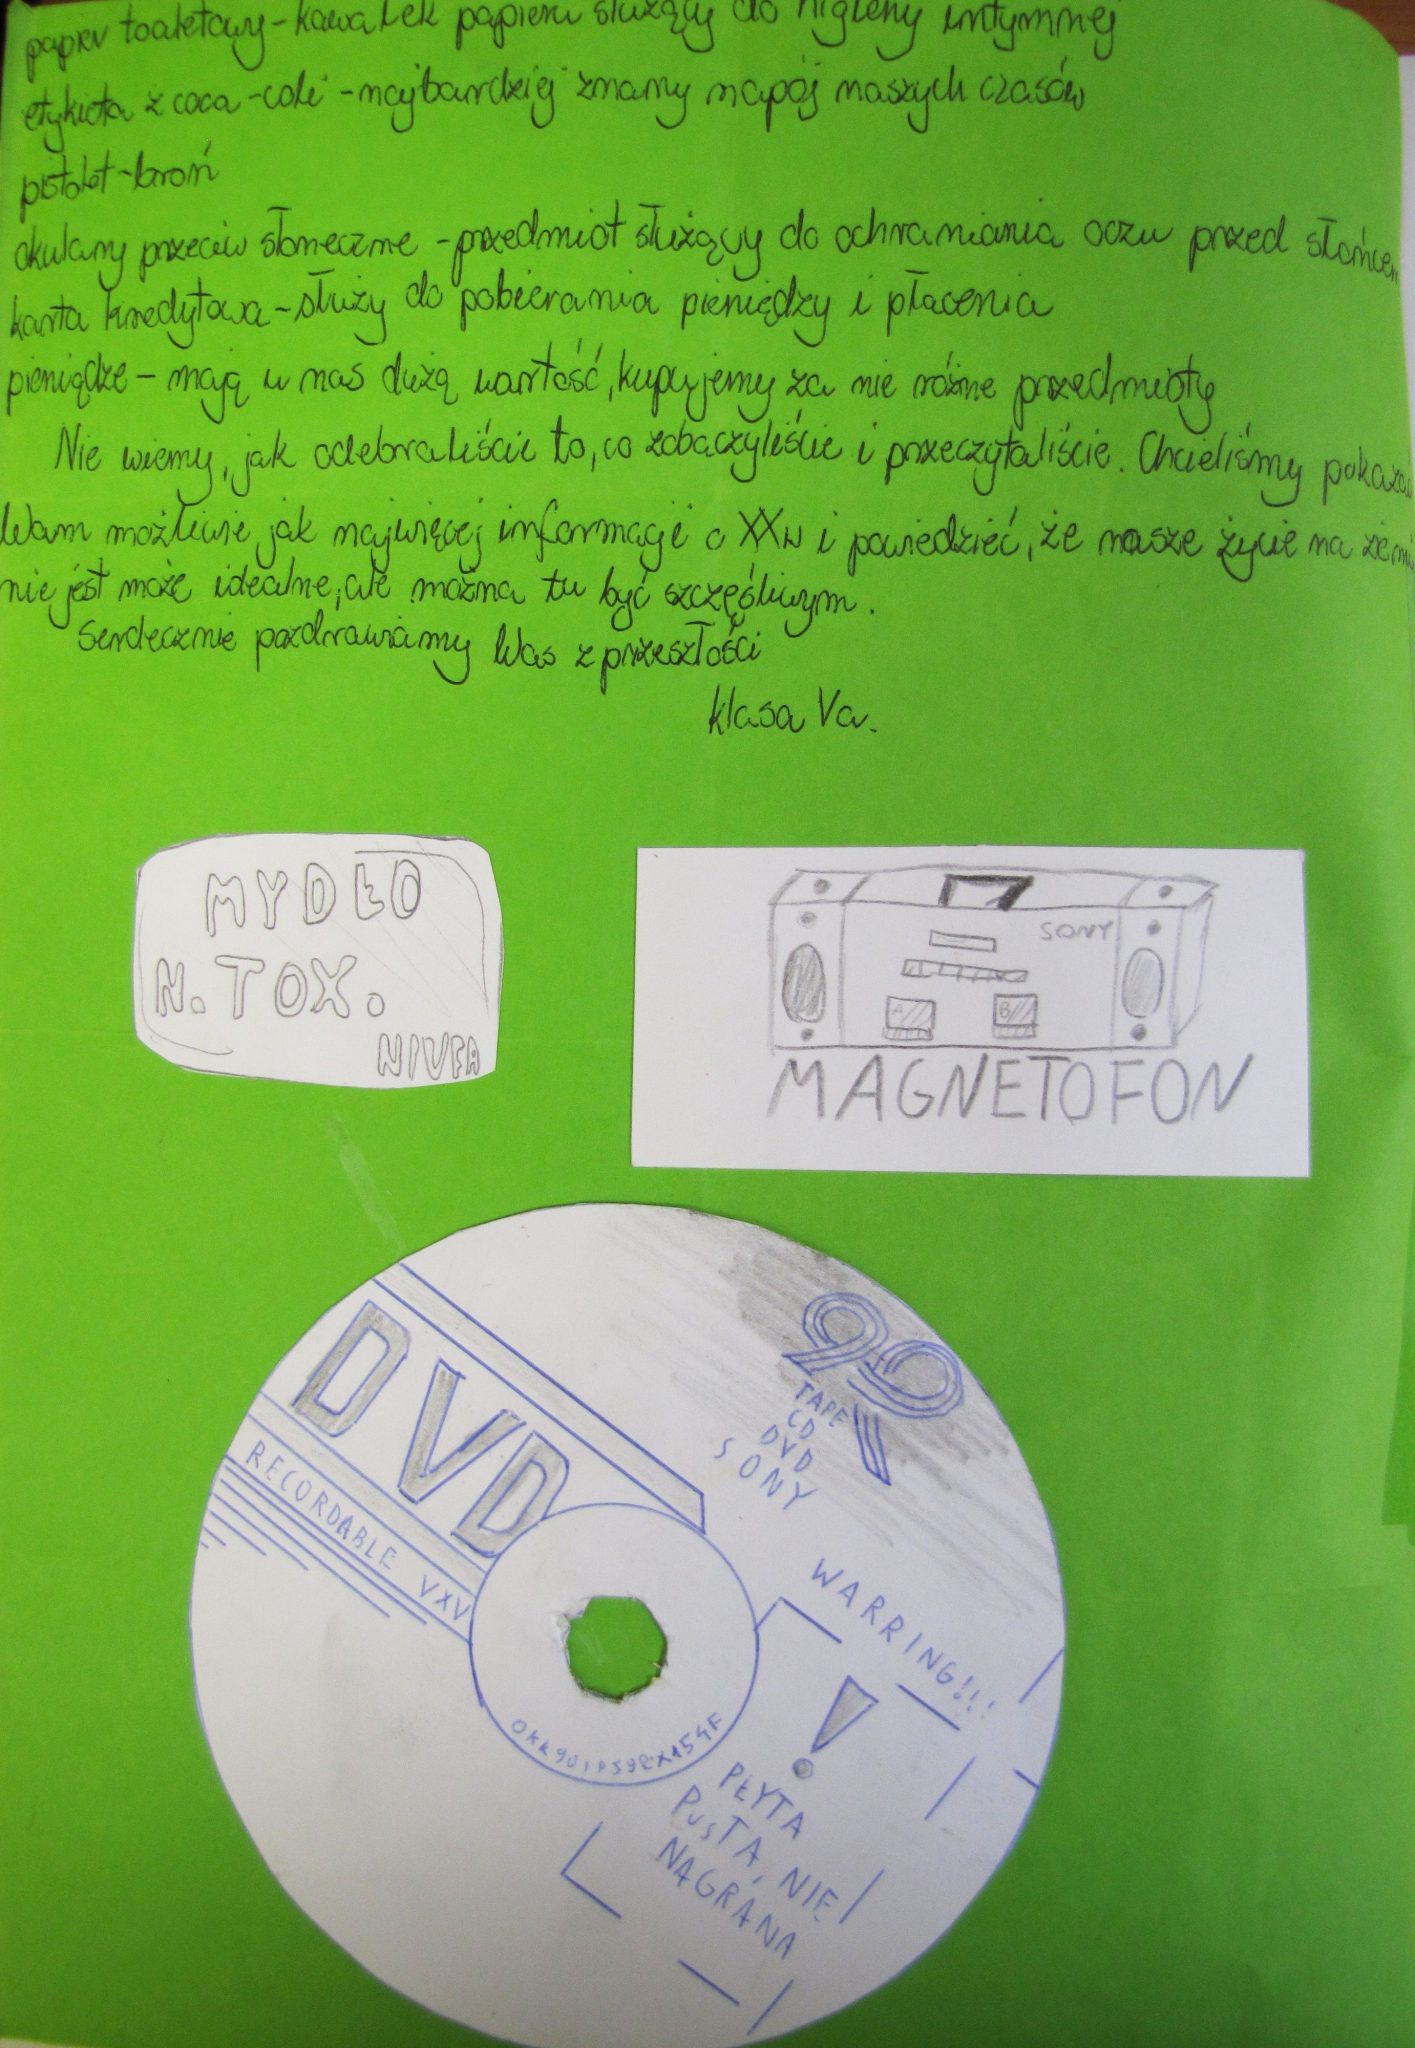 papier toaletowy - kawałek papieru służący do higieny intymnej
etykieta z coca-coli - najbardziej znany napój naszych czasów
pistolet - broń
okulary przeciw słoneczne - przedmiot służący do ochraniania oczu przed słońcem
karta kredytowa - służy do pobierania pieniędzy i płacenia
pieniądze - mają u nas dużą wartość, kupujemy za nie różne przedmioty
Nie wiemy, jak odebraliście to, co zobaczyliście i przeczytaliście. Chcieliśmy pokazać
Wam możliwie jak najwięcej informacji o XXw i powiedzieć, że nasze życie na ziemi
nie jest może idealne, ale można tu być szczęśliwym.
Serdecznie pozdrawiamy Was z przeszłości
klasa Va.
MYDŁO
N.TOX.
NIVEA
SONY
A B
MAGNETOFON
DVD
RECORDABLE VXV
TAPE
CD
DVD
SONY
WARRING!!!
!
PŁYTA
PUSTA, NIE
NAGRANA